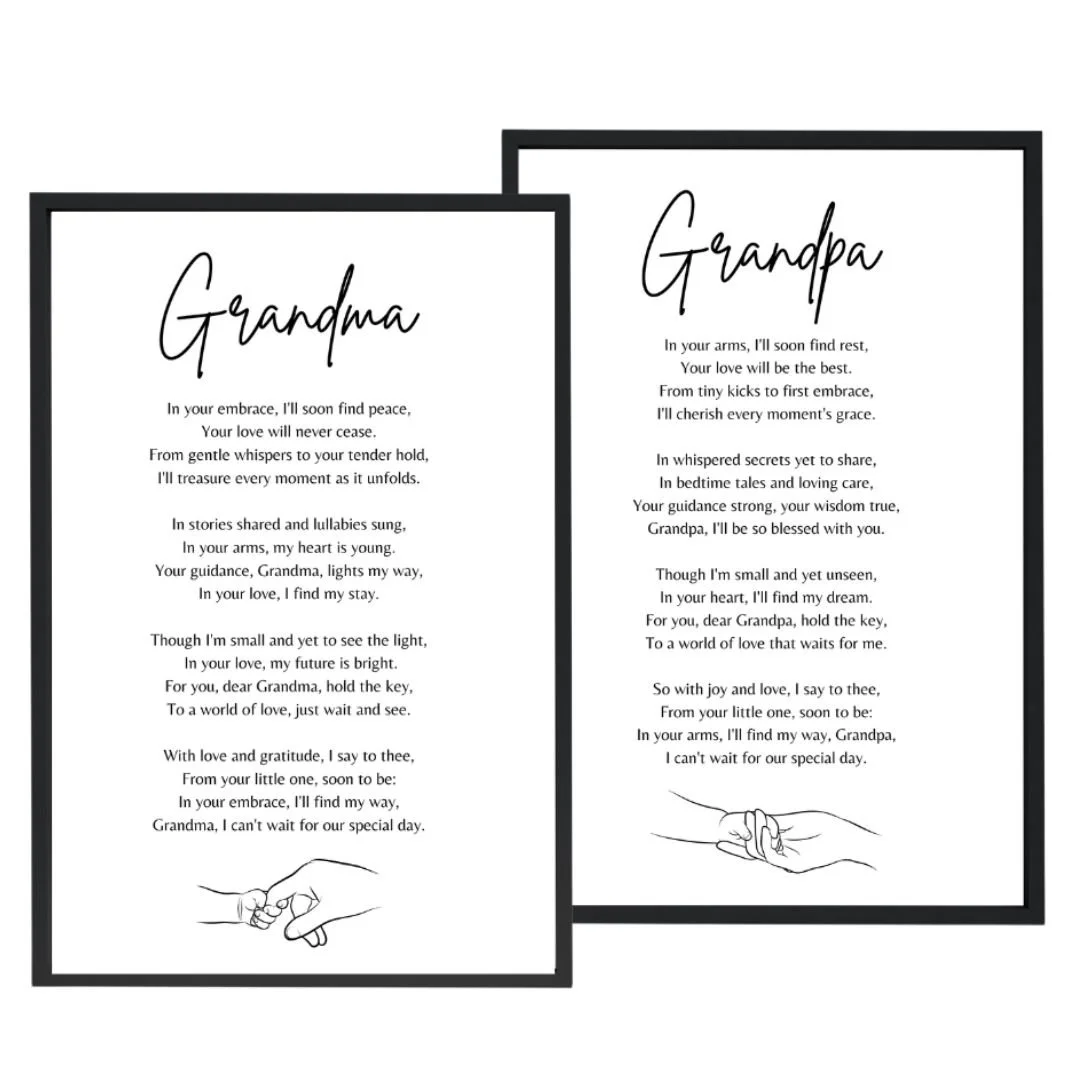 Grandma
In your embrace, I'll soon find peace,
Your love will never cease.
From gentle whispers to your tender hold,
I'll treasure every moment as it unfolds.
In stories shared and lullabies sung,
In your arms, my heart is young.
Your guidance, Grandma, lights my way,
In your love, I find my stay.
Though I'm small and yet to see the light,
In your love, my future is bright.
For you, dear Grandma, hold the key,
To a world of love, just wait and see.
With love and gratitude, I say to thee,
From your little one, soon to be:
In your embrace, I'll find my way,
Grandma, I can't wait for our special day.
Grandpa
In your arms, I'll soon find rest,
Your love will be the best.
From tiny kicks to first embrace,
I'll cherish every moment's grace.
In whispered secrets yet to share,
In bedtime tales and loving care,
Your guidance strong, your wisdom true,
Grandpa, I'll be so blessed with you.
Though I'm small and yet unseen,
In your heart, I'll find my dream.
For you, dear Grandpa, hold the key,
To a world of love that waits for me.
So with joy and love, I say to thee,
From your little one, soon to be:
In your arms, I'll find my way, Grandpa,
I can't wait for our special day.